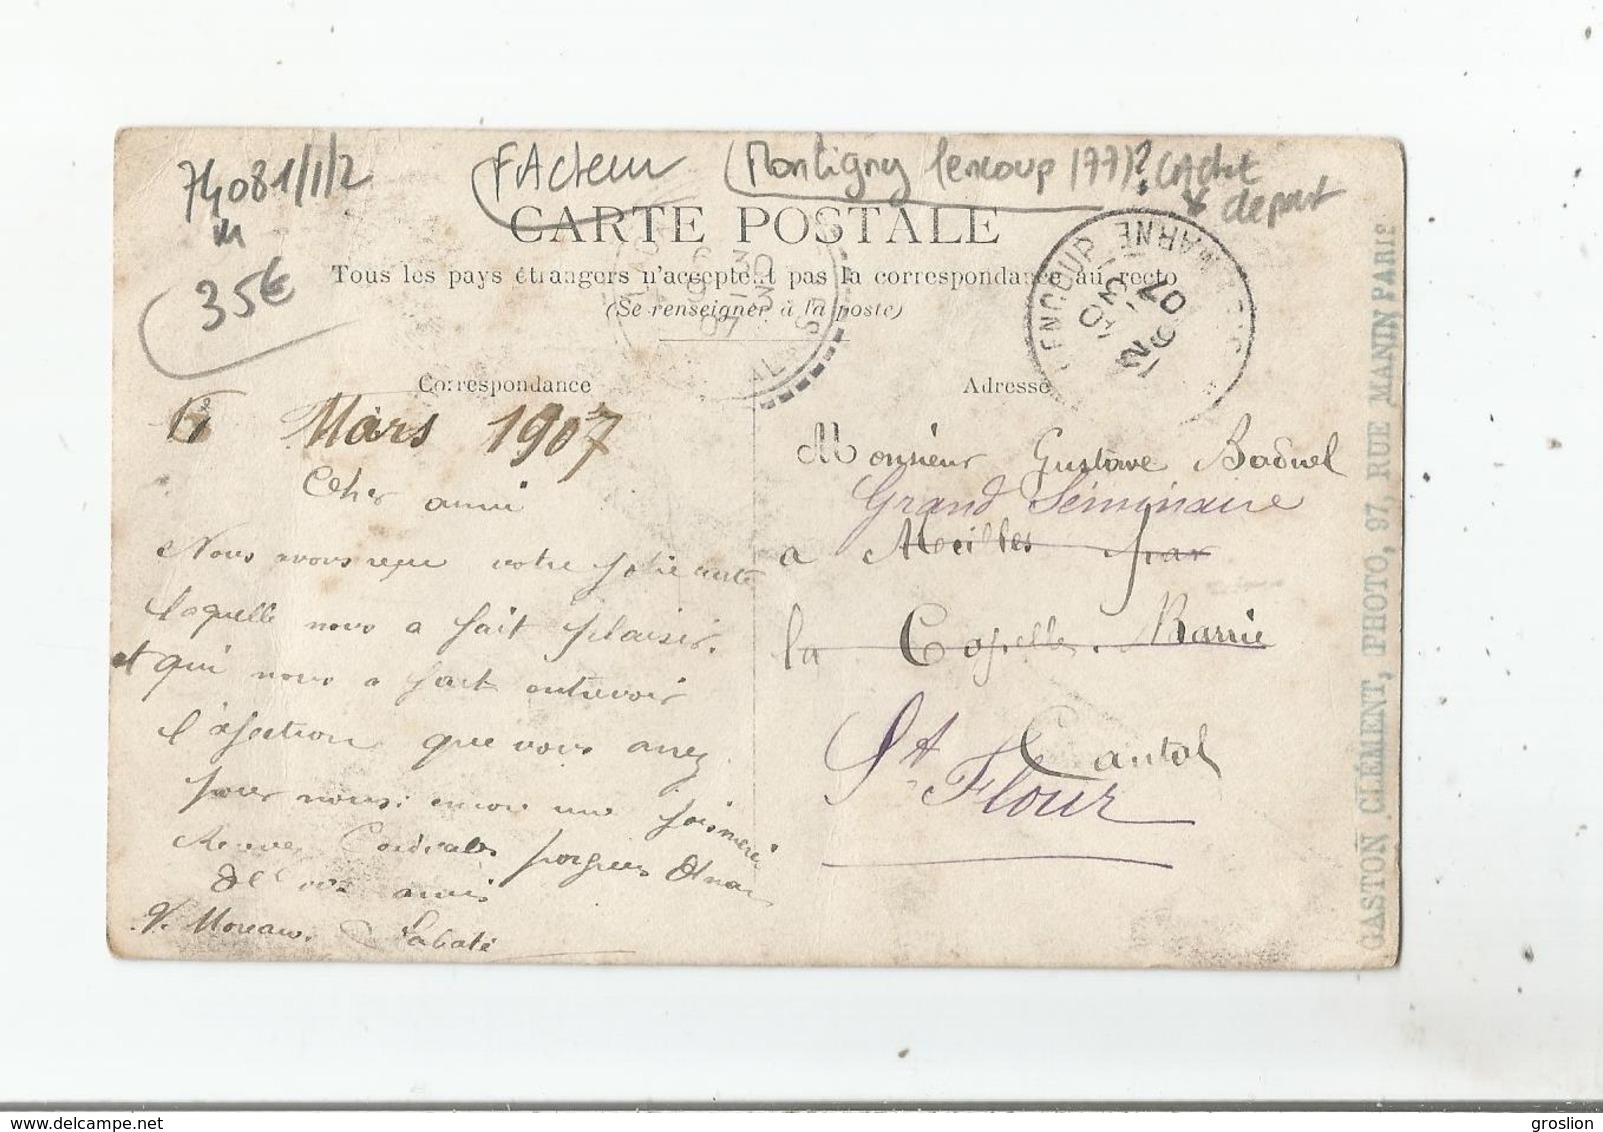 74081/1/2
35€
FActeur (Montigny lencoup (77)? CAchet
depart
CARTE POSTALE
Tous les pays étrangers n'acceptent pas la correspondance au recto
(Se renseigner à la poste)
Correspondance
Adresse
ENCOUP
MARNE
07
Mars 1907
Cher ami
Nous avons reçu votre jolie carte
laquelle nous a fait plaisir.
et qui nous a fait entrevoir
l'afection que vous avez
pour nous. encore une fois merci
Recevez Cordiales
vos amis
Moreau. Labaté
Monsieur Gustave Baduel
Grand Séminaire
a par
la Capelle. Barrie
Cantal
St Flour
GASTON CLÉMENT, PHOTO, 97, RUE MANIN PARIS
groslion
www.delcampe.net